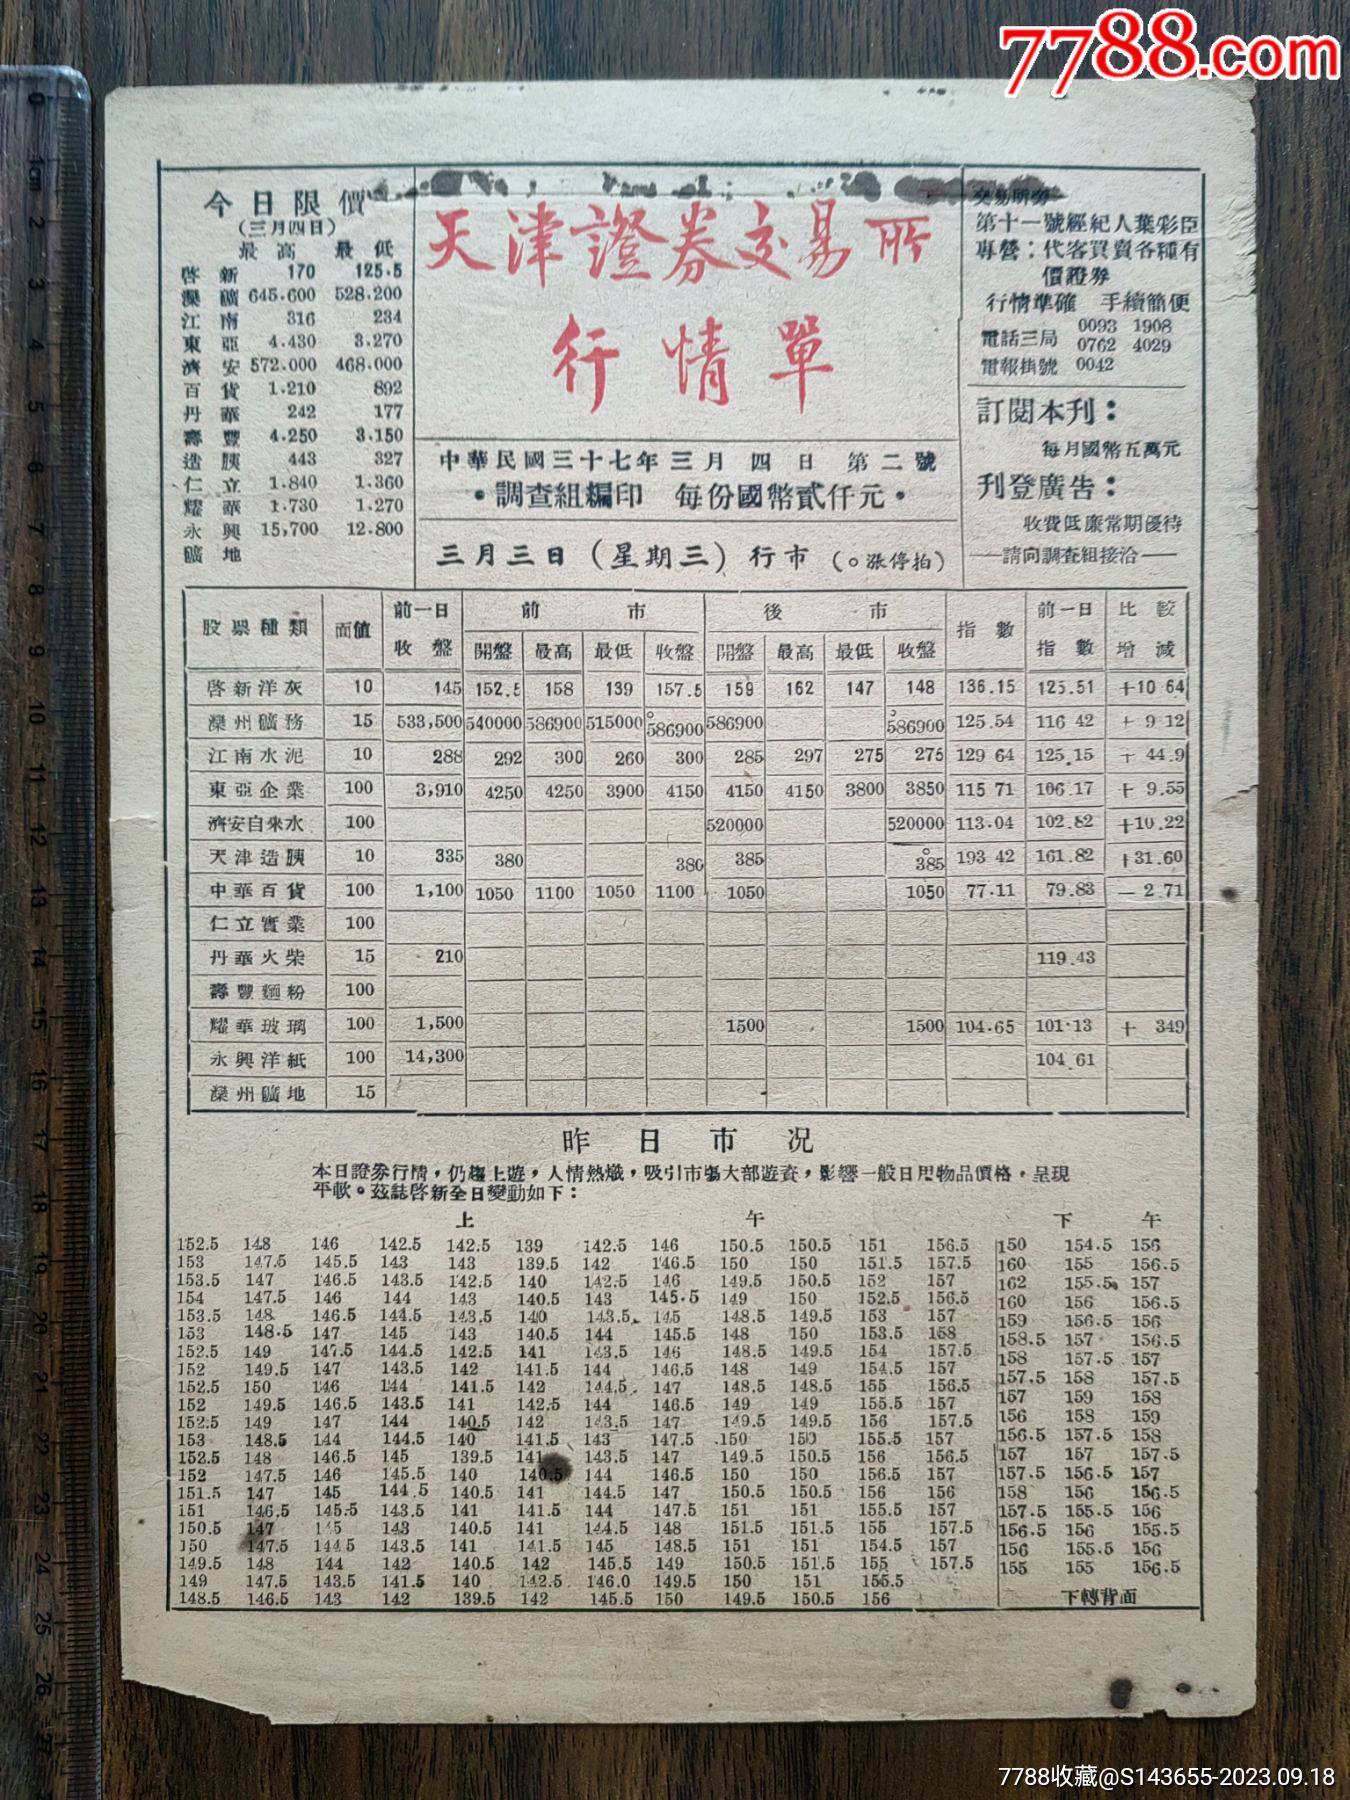 7788.com
今日限價
(三月四日)
最高 最低
啓新 170 125.5
灤礦 645.600 528.200
江南 316 234
東亞 4.430 3.270
濟安 572.000 468.000
百貨 1.210 892
丹華 242 177
壽豐 4.250 3.150
造胰 443 327
仁立 1.840 1.360
耀華 1.730 1.270
永興 15,700 12.800
礦地
天津證券交易所
行情單
中華民國三十七年三月四日 第二號
·調查組編印 每份國幣貳仟元·
三月三日(星期三)行市(○漲停拍)
交易所旁
第十一號經紀人葉彩臣
專營:代客買賣各種有
價證券
行情準確 手續簡便
電話三局 0093 1908
0762 4029
電報掛號 0042
訂閱本刊:
每月國幣五萬元
刊登廣告:
收費低廉常期優待
—請向調查組接洽—
股票種類 面值 前一日收盤 前市 後市 指數 前一日指數 比較增減
開盤 最高 最低 收盤 開盤 最高 最低 收盤
啓新洋灰 10 145 152.5 158 139 157.5 159 162 147 148 136.15 125.51 +10 64
灤州礦務 15 533,500 540000 586900 515000 ○586900 586900 ○586900 125.54 116 42 + 9 12
江南水泥 10 288 292 300 260 300 285 297 275 275 129 64 125.15 + 44.9
東亞企業 100 3,910 4250 4250 3900 4150 4150 4150 3800 3850 115 71 106.17 + 9.55
濟安自來水 100 520000 520000 113.04 102.82 +10.22
天津造胰 10 335 380 380 385 ○385 193 42 161.82 +31.60
中華百貨 100 1,100 1050 1100 1050 1100 1050 1050 77.11 79.83 — 2 71
仁立實業 100
丹華火柴 15 210 119.43
壽豐麵粉 100
耀華玻璃 100 1,500 1500 1500 104.65 101.13 + 349
永興洋紙 100 14,300 104.61
灤州礦地 15
昨日市况
本日證券行情,仍趨上遊,人情熱熾,吸引市場大部遊資,影響一般日用物品價格,呈現
平軟。茲誌啓新全日變動如下:
上午 下午
152.5 148 146 142.5 142.5 139 142.5 146 150.5 150.5 151 156.5 150 154.5 156
153 147.5 145.5 143 143 139.5 142 146.5 150 150 151.5 157.5 160 155 156.5
153.5 147 146.5 143.5 142.5 140 142.5 146 149.5 150.5 152 157 162 155.5 157
154 147.5 146 144 143 140.5 143 145.5 149 150 152.5 156.5 160 156 156.5
153.5 148 146.5 144.5 143.5 140 143.5 145 148.5 149.5 153 157 159 156.5 156
153 148.5 147 145 143 140.5 144 145.5 148 150 153.5 158 158.5 157 156.5
152.5 149 147.5 144.5 142.5 141 143.5 146 148.5 149.5 154 157.5 158 157.5 157
152 149.5 147 143.5 142 141.5 144 146.5 148 149 154.5 157 157.5 158 157.5
152.5 150 146 144 141.5 142 144.5 147 148.5 148.5 155 156.5 157 159 158
152 149.5 146.5 143.5 141 142.5 144 146.5 149 149 155.5 157 156 158 159
152.5 149 147 144 140.5 142 143.5 147 149.5 149.5 156 157.5 156.5 157.5 158
153 148.5 144 144.5 140 141.5 143 147.5 150 150 155.5 157 157 157 157.5
152.5 148 146.5 145 139.5 141 143.5 147 149.5 150.5 156 156.5 157.5 156.5 157
152 147.5 146 145.5 140 140.5 144 146.5 150 150 156.5 157 158 156 156.5
151.5 147 145 144.5 140.5 141 144.5 147 150.5 150.5 156 156 157.5 155.5 156
151 146.5 145.5 143.5 141 141.5 144 147.5 151 151 155.5 157 156.5 156 155.5
150.5 147 145 143 140.5 141 144.5 148 151.5 151.5 155 157.5 156 155.5 156
150 147.5 144.5 143.5 141 141.5 145 148.5 151 151 154.5 157 155 155 156.5
149.5 148 144 142 140.5 142 145.5 149 150.5 151.5 155 157.5
149 147.5 143.5 141.5 140 142.5 146.0 149.5 150 151 155.5
148.5 146.5 143 142 139.5 142 145.5 150 149.5 150.5 156
下轉背面
7788收藏@S143655-2023.09.18